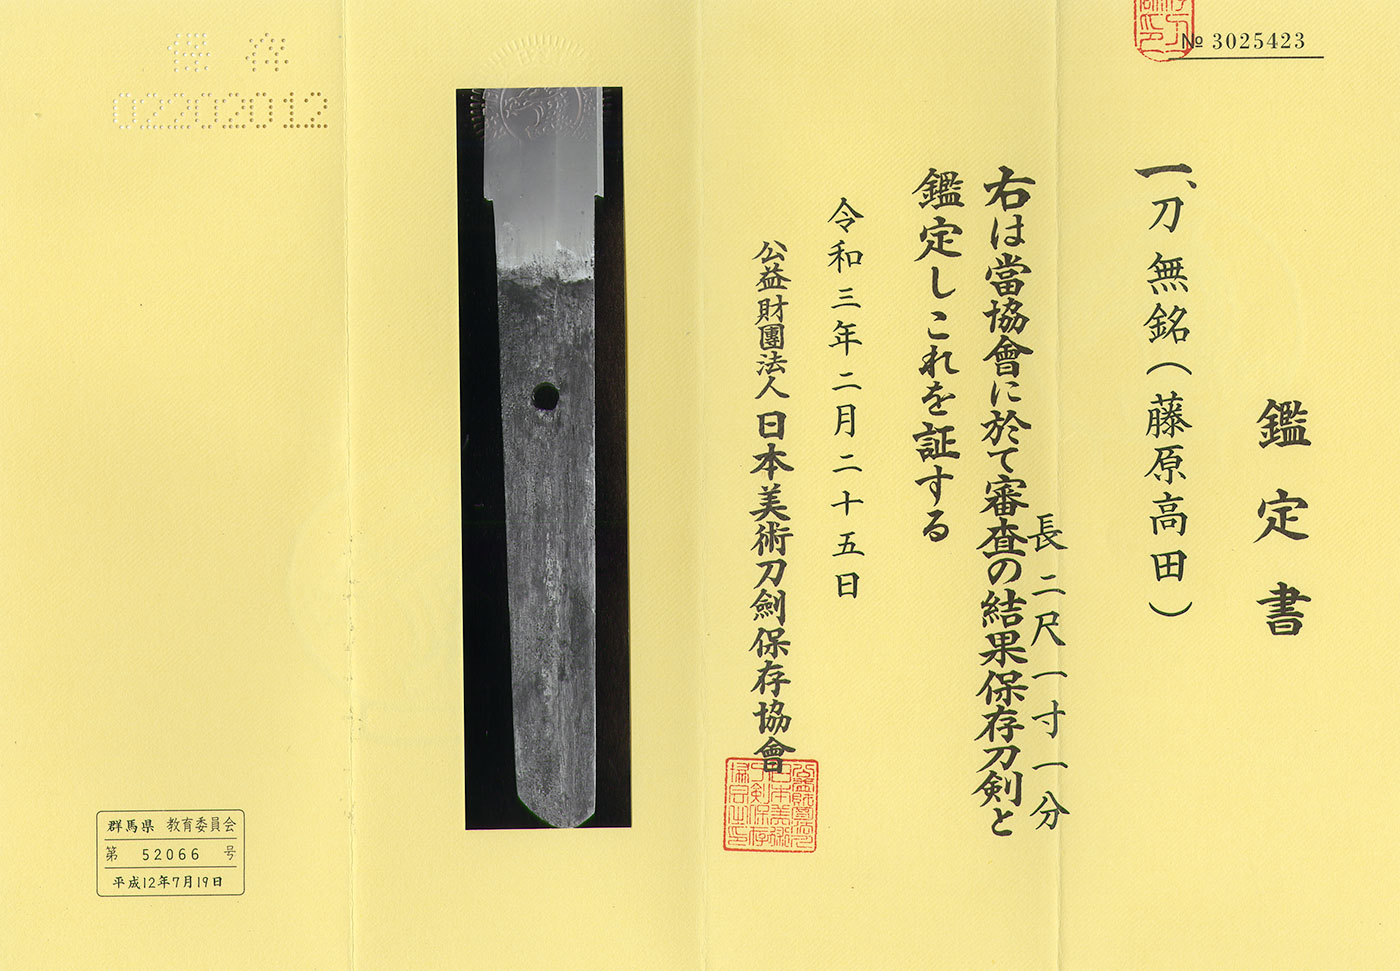 № 3025423
鑑定書
一、刀 無銘（藤原高田）
長 二尺一寸一分
右は當協會に於て審査の結果保存刀剣と
鑑定しこれを証する
令和三年二月二十五日
公益財團法人 日本美術刀劍保存協會
保存
02202012
群馬県 教育委員会
第 52066 号
平成12年7月19日